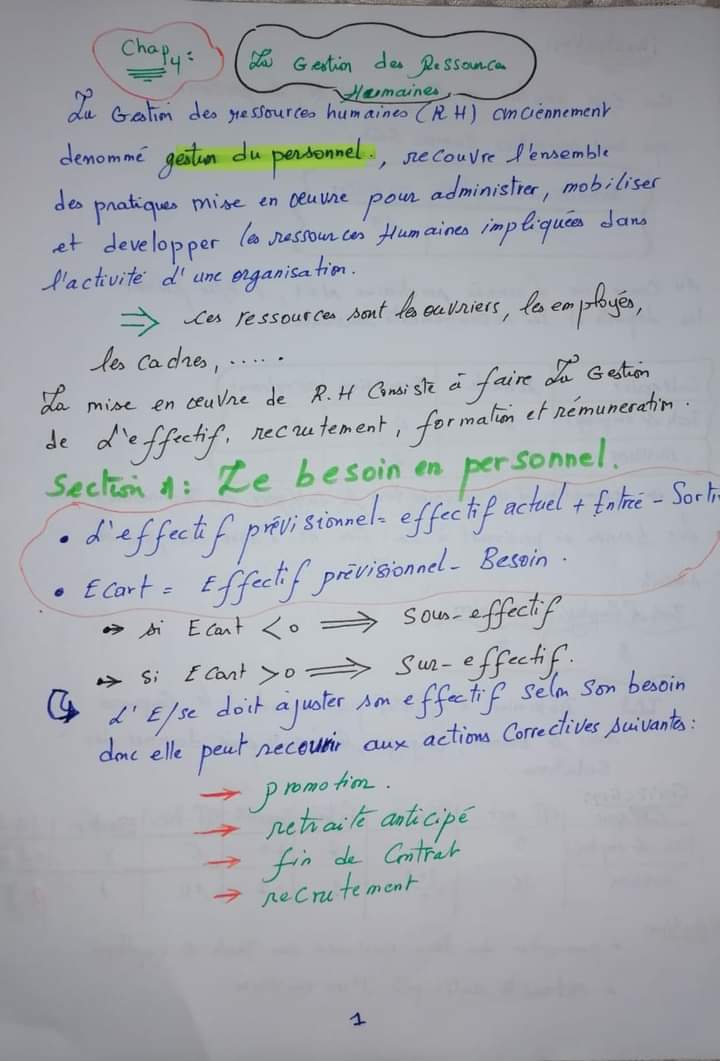 Chap 4 :
La Gestion des Ressources
Humaines
La Gestion des ressources humaines (R H) anciennement
denommé gestion du personnel., recouvre l'ensemble
des pratiques mise en œuvre pour administrer, mobiliser
et developper les ressources Humaines impliquées dans
l'activité d'une organisation.
⇒ Ces ressources sont les ouvriers, les employés,
les cadres, .....
La mise en œuvre de R.H Consiste à faire La Gestion
de L'effectif, recrutement, formation et rémuneration.
Section 1 : Le besoin en personnel.
• L'effectif prévisionnel = effectif actuel + Entrée - Sorti
• Ecart = Effectif prévisionnel - Besoin.
↠ si Ecart < 0 ⇒ Sous-effectif
↠ Si Ecart > 0 ⇒ Sur-effectif.
↳ L'E/se doit ajuster son effectif Selon Son besoin
donc elle peut recourir aux actions Correctives suivantes :
→ promotion.
→ retraite anticipé
→ fin de Contrat
→ recrutement
1